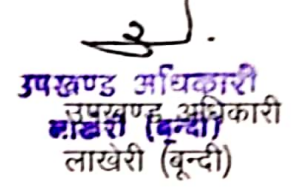 उपखण्ड अधिकारी
उपखण्ड अधिकारी
लाखेरी (बून्दी)
लाखेरी (बून्दी)